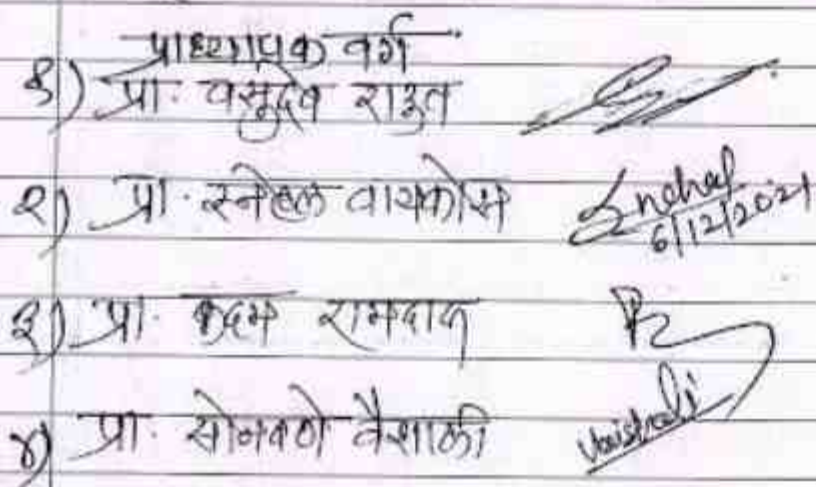 प्राध्यापक वर्ग
१) प्रा. वसुदेव राऊत
२) प्रा. स्नेहल वायकोस Snehal
6/12/2021
३) प्रा. कदम रामदास
४) प्रा. सोनवणे वैशाली Vaishali